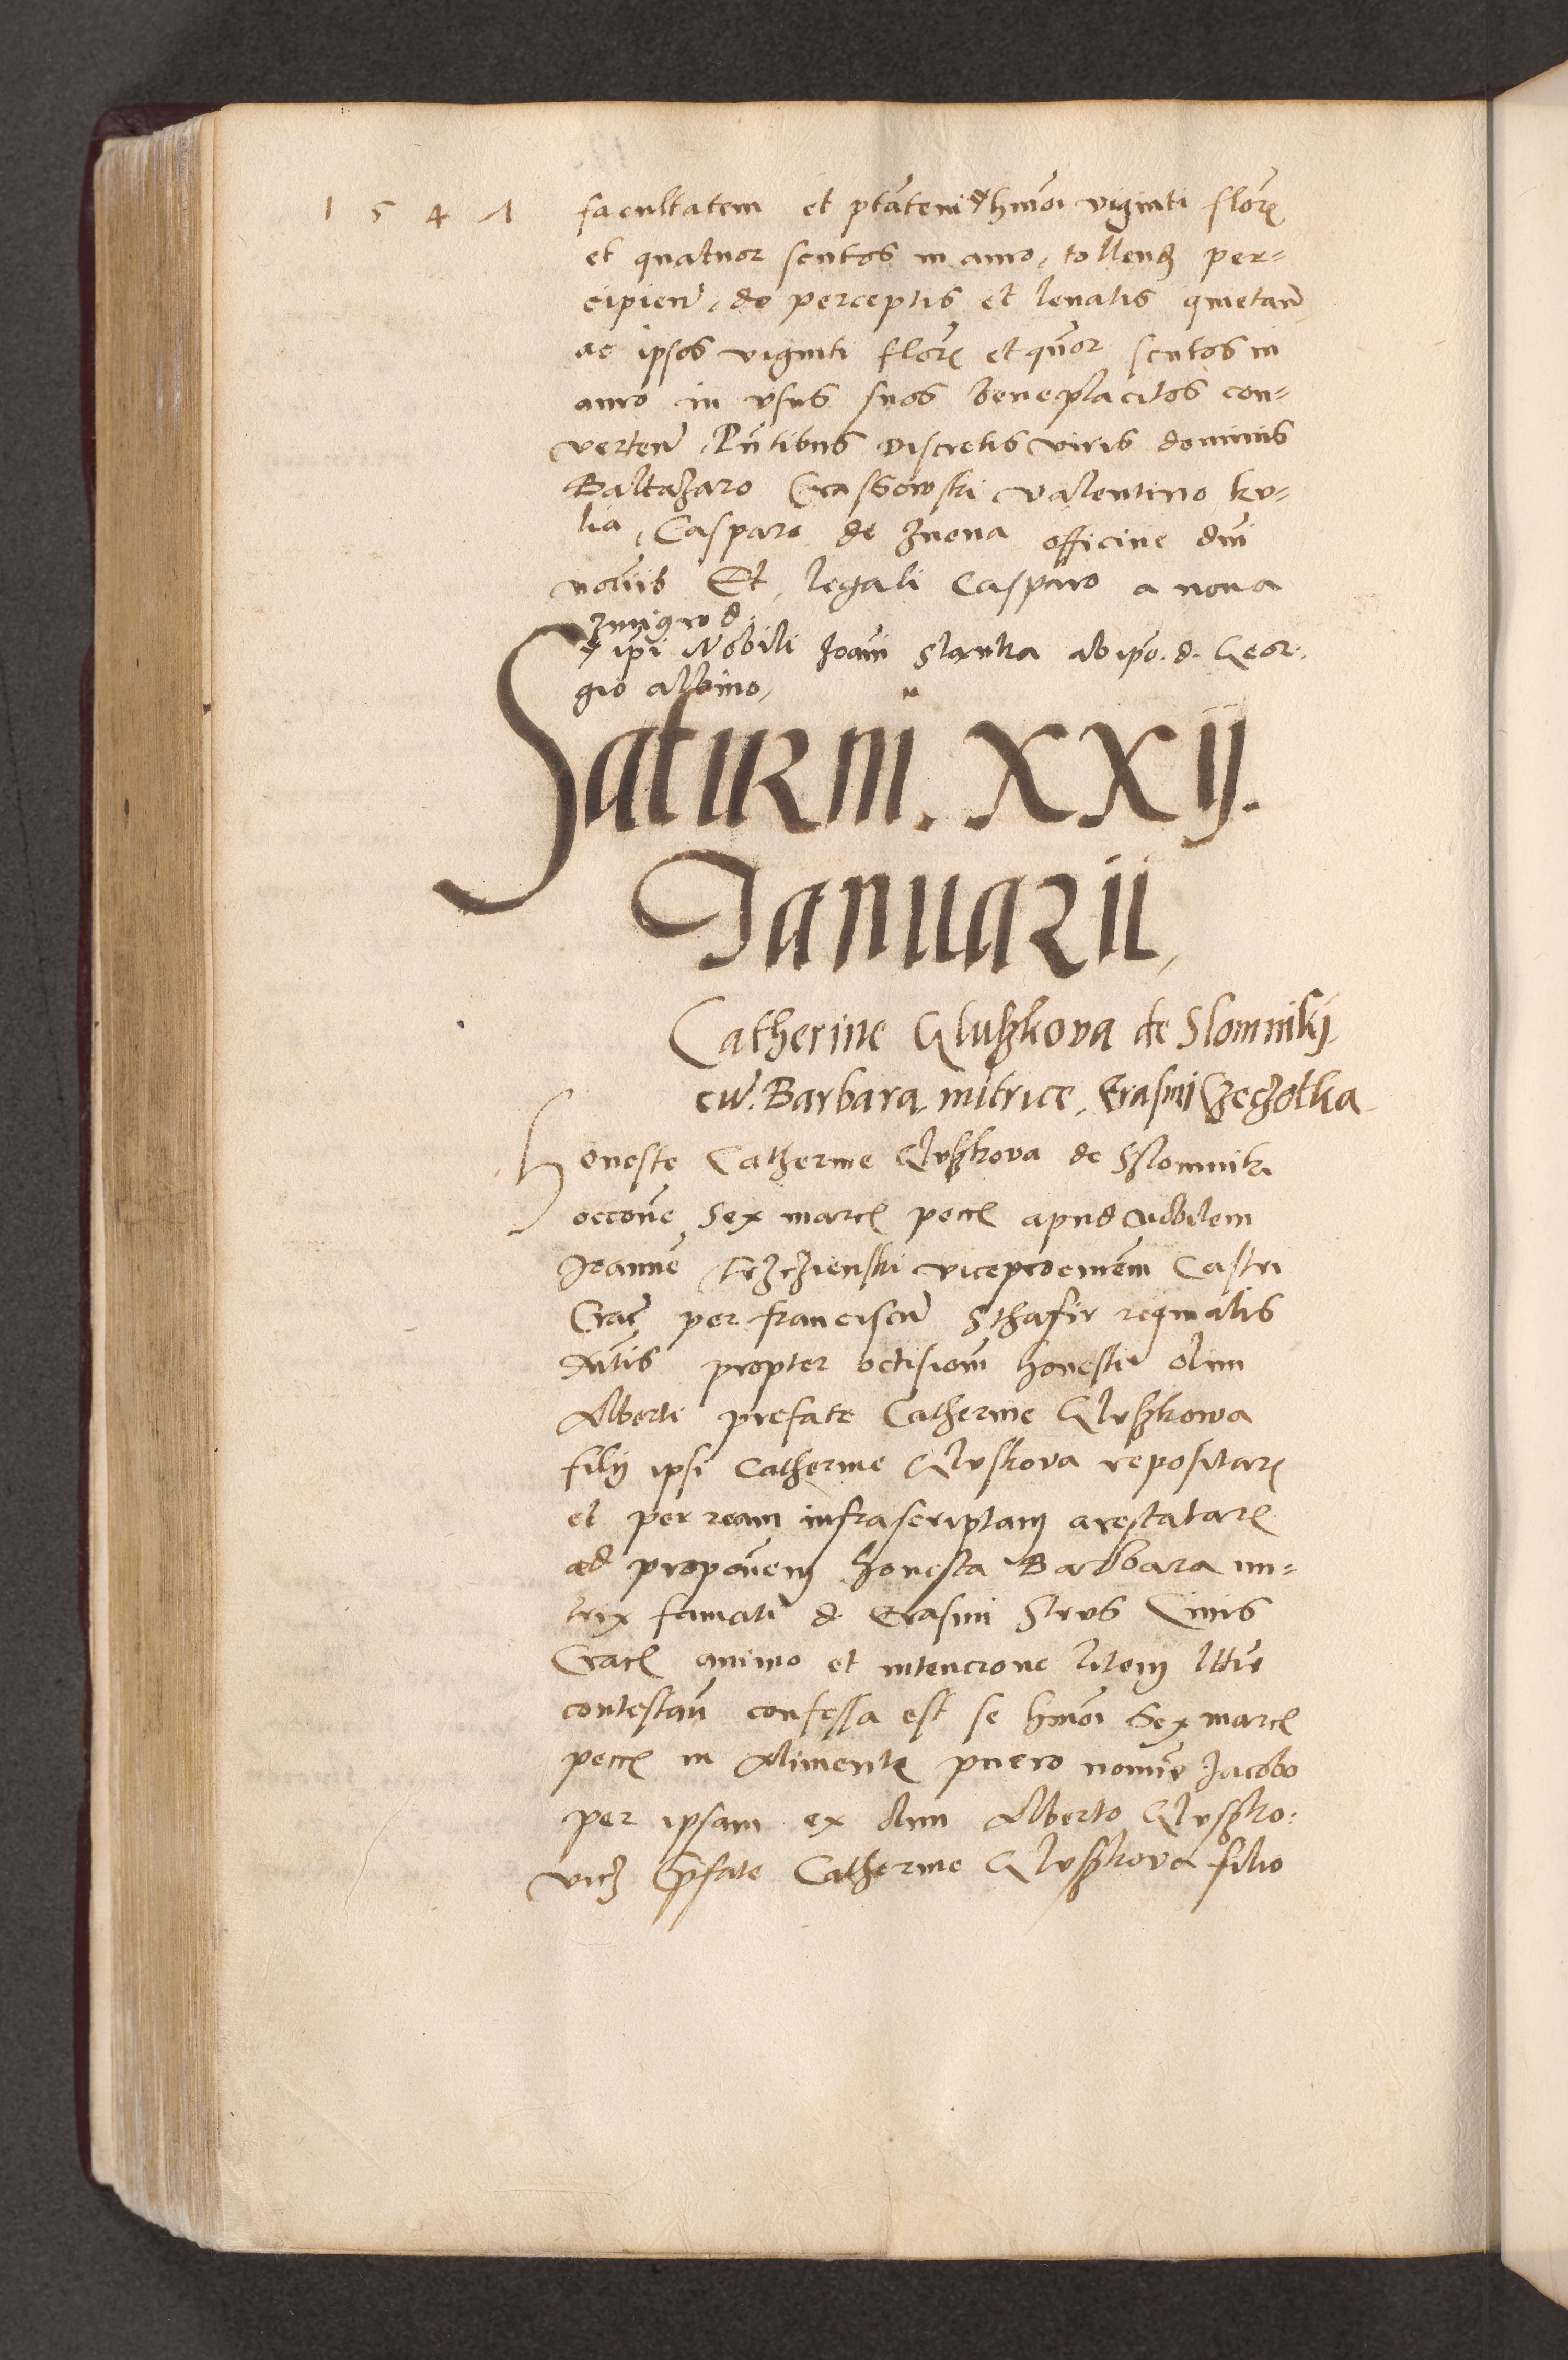 1 5 4 1
facultatem et ptātem ⁊ hmōi viginti florꝭ
et quatuor scutos in auro, tollenđ per=
cipienđ, de perceptis et levatis quietanđ
ac ipsos viginti florꝭ et quōr scutos in
auro in usus suos beneplacitos con=
vertenđ. Pn̄tibus discretis viris dominis
Baltazaro Grassowski Valentino ku=
lia, Casparo de Znena officine dni
notariis Et legali Casparo a nova
Zmigrod.
ipi Nobili Joāni Slanka ab ipo. d. Geor=
gio albino,
Saturni. XXII.
Januarii,
Catherine Gluszkova de Slomniki
cū. Barbara. nutrice, Erasmi Czeczotka
Honeste Catherine Gluszkova de Sslomniki
occōne Sex marcꝭ pecꝭ apud nobilem
Joannē Trzczienski viceprocurātem Castri
Crac per franciscū Sthafir regnalis
propter occisionē honesti olim
Alberti prefate Catherine Gluszkowa
filij ipsi Catherine Gluskova repositarꝭ
et per ream infrascriptam arestatarꝭ
ad propōnem honesta Barbara nu=
trix famati d. Erasmi Strus Civis
Cracꝭ animo et intencione litem
contestanđ confessa est se hmōi Sex marcꝭ
pecꝭ in Alimentꝭ puero nomine Jacobo
per ipsam ex olim Alberto Gluszko=
vicz pfate Catherine Gluszkova filio